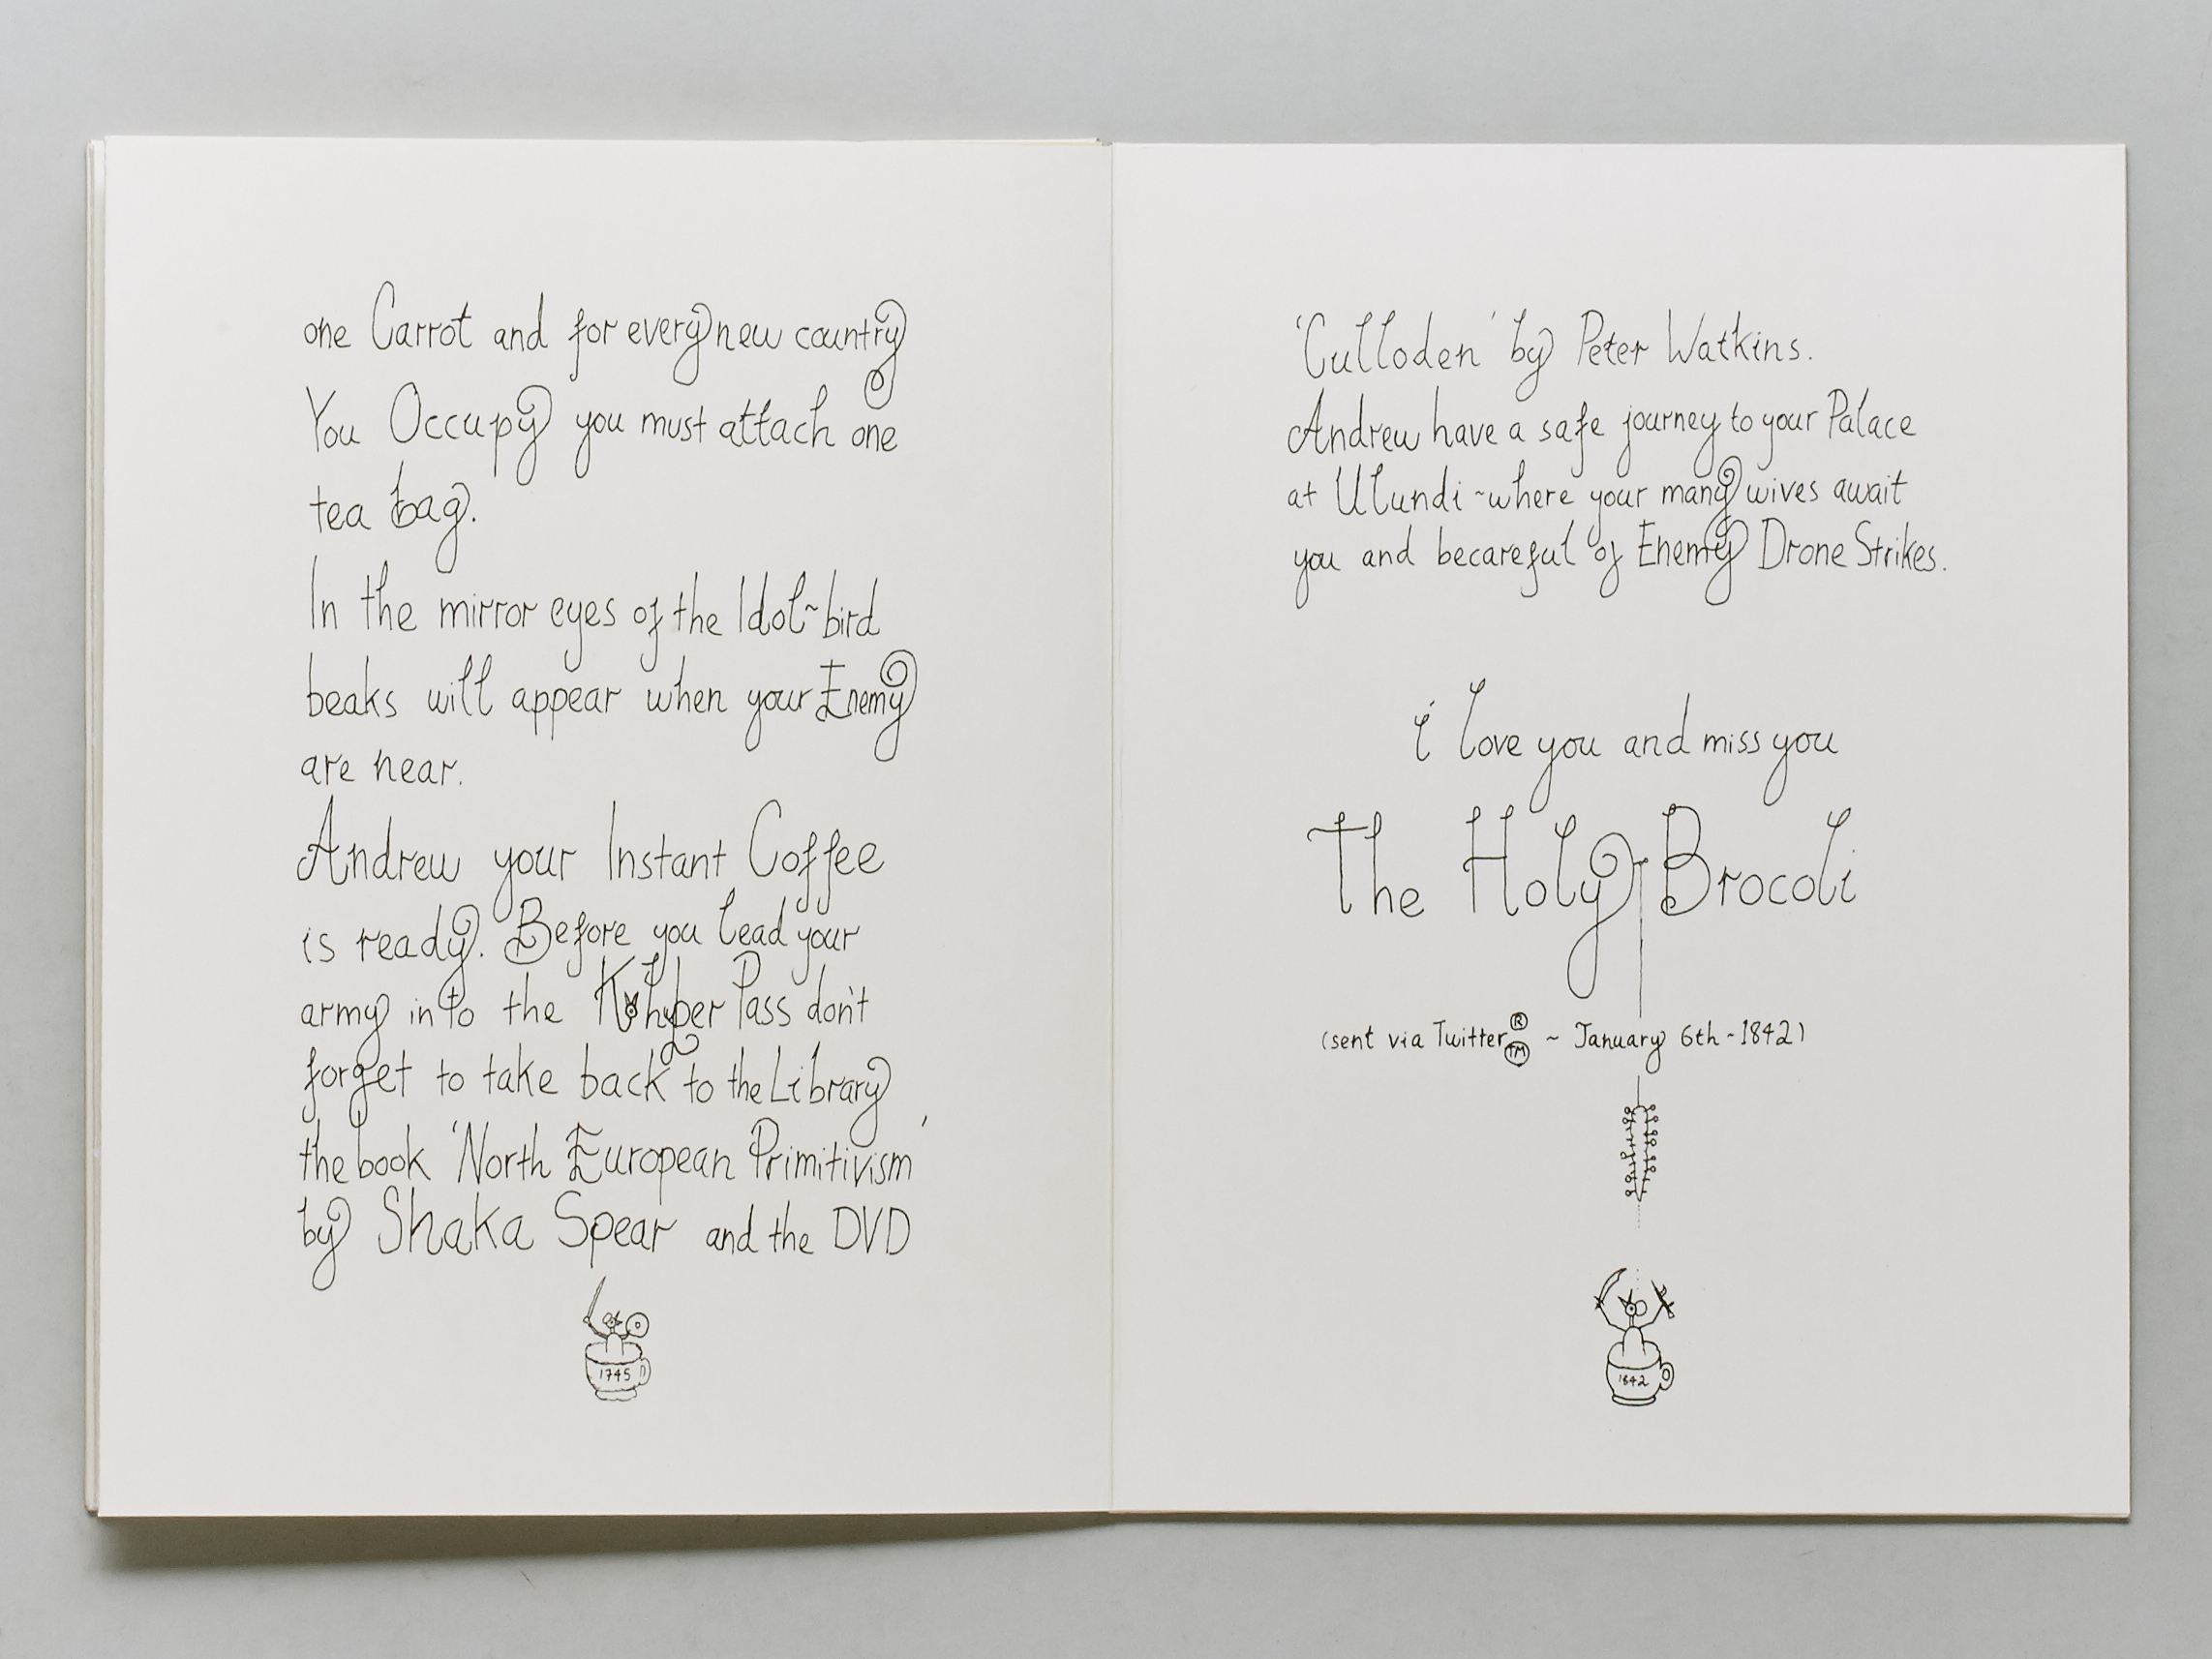 one Carrot and for every new country
You Occupy you must attach one
tea bag.
In the mirror eyes of the Idol~bird
beaks will appear when your Enemy
are near.
Andrew your Instant Coffee
is ready. Before you lead your
army into the Pass don't
forget to take back to the Library
the book 'North European Primitivism'
by Shaka Spear and the DVD
1745
'Culloden' by Peter Watkins.
Andrew have a safe journey to your Palace
at Ulundi ~ where your many wives await
you and becareful of Enemy Drone Strikes.
i love you and miss you
The Holy Brocoli
(sent via Twitter ® ™ ~ January 6th ~ 1842)
1842